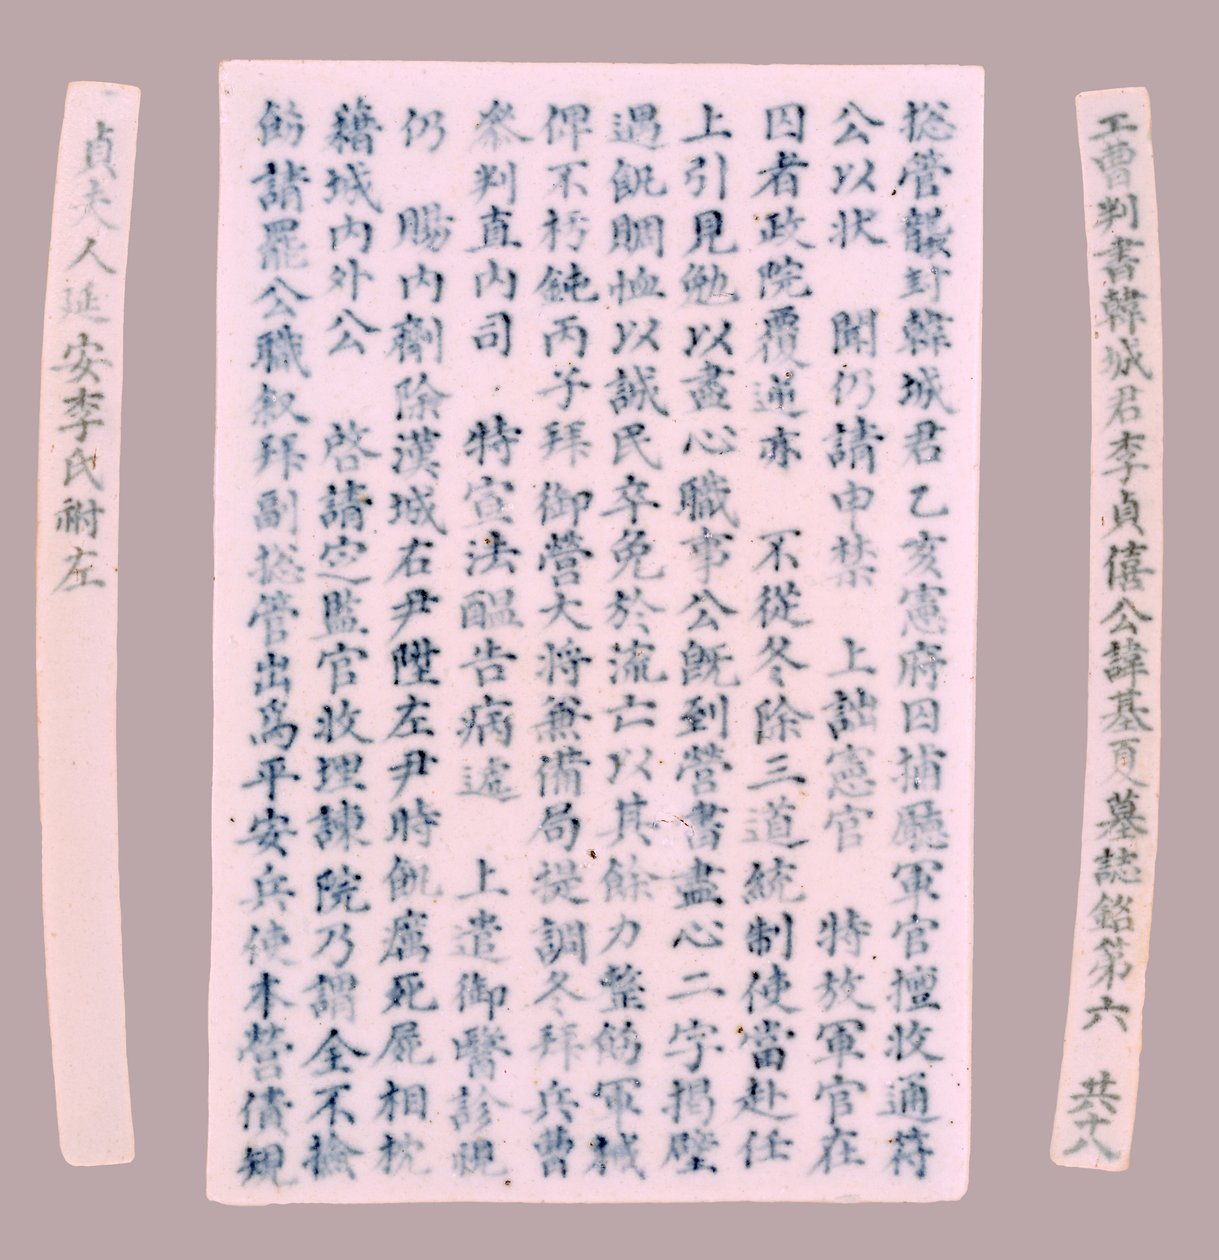 工曹判書韓城君李貞僖公諱基夏墓誌銘第六 共十八
捴管襲封韓城君乙亥憲府囚捕廳軍官擅收通符
公以状 聞仍請申禁 上詘憲官 特放軍官在
囚者政院覆逆亦 不從冬除三道統制使當赴任
上引見勉以盡心職事公旣到營書盡心二字揭壁
遇飢賙恤以誠民卒免於流亡以其餘力整飭軍械
俾不朽鈍丙子拜御營大将兼備局提調冬拜兵曹
叅判直內司 特宣法醞告病遞 上遣御醫診視
仍 賜內劑除漢城右尹陞左尹時飢癘死屍相枕
藉城內外公 啓請定監官收埋諫院乃謂全不撿
飭請罷公職叙拜副捴管出爲平安兵使本營債規
貞夫人延安李氏祔左